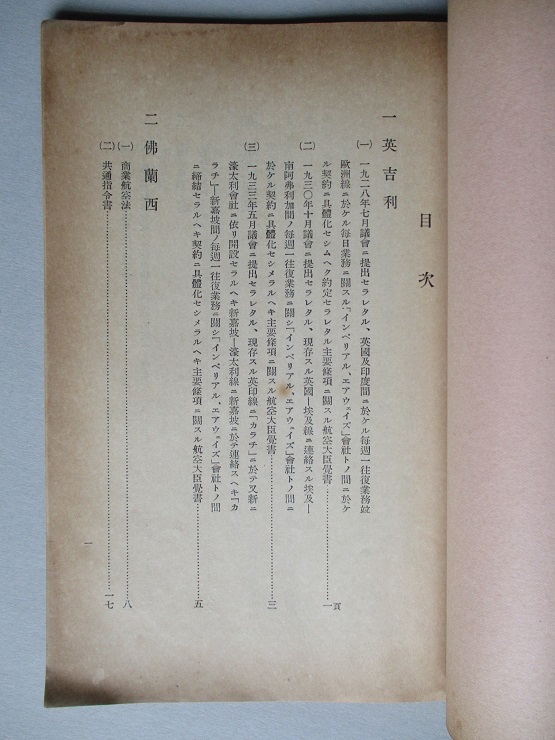 目次
一 英吉利
(一) 一九二八年七月議會ニ提出セラレタル、英國及印度間ニ於ケル毎週一往復業務竝
歐洲線ニ於ケル毎日業務ニ關スル「インペリアル、エアウェイズ」會社トノ間ニ於ケ
ル契約ニ具體化セシムヘク約定セラレタル主要條項ニ關スル航空大臣覺書……一頁
(二) 一九三〇年十月議會ニ提出セラレタル、現存スル英國—埃及線ニ連絡スル埃及—
南阿弗利加間ノ毎週一往復業務ニ關シ「インペリアル、エアウェイズ」會社トノ間ニ
於ケル契約ニ具體化セシメラルヘキ主要條項ニ關スル航空大臣覺書……三
(三) 一九三三年五月議會ニ提出セラレタル、現存スル英印線ニ「カラチ」ニ於テ又新ニ
濠太利會社ニ依リ開設セラルヘキ新嘉坡—濠太利線ニ新嘉坡ニ於テ連絡スヘキ「カ
ラチ」—新嘉坡間ノ毎週一往復業務ニ關シ「インペリアル、エアウェイズ」會社トノ間
ニ締結セラルヘキ契約ニ具體化セシメラルヘキ主要條項ニ關スル航空大臣覺書……五
二 佛蘭西
(一) 商業航空法……八
(二) 共通指令書……一七
一